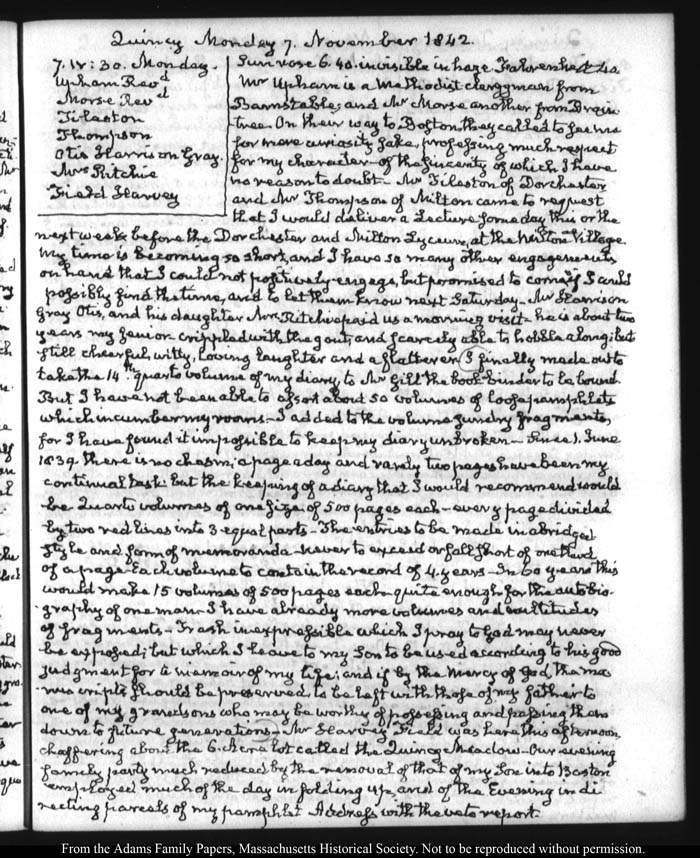 Quincy Monday 7. November 1842.
7. IV:30. Monday.
Upham Revd
Morse Revd
Tileston
Thompson
Otis Harrison Gray.
Mrs Ritchie
Field Harvey
Sun rose 6.40. invisible in haze Fahrenheit
Mr Upham is a Methodist clergyman from
Barnstable; and Mr Morse another from Brain
tree. On their way to Boston they called to see me
for mere curiosity sake, professing much respect
for my character—of the sincerity of which I have
no reason to doubt—Mr Tileston of Dorchester
and Mr Thompson of Milton came to request
that I would deliver a Lecture some day this or the
next week before the Dorchester and Milton Lyceum, at the Milton Village.
My time is becoming so short, and I have so many other engagements
on hand that I could not positively engage, but promised to come if I could
possibly find the time, and to let them know next Saturday—Mr Harrison
Gray Otis, and his daughter Mrs Ritchie paid us a morning visit—he is about two
years my senior crippled with the gout, and scarcely able to hobble along; but
still cheerful, witty, loving laughter and a flatterer. I finally made out to
take the 14th quarto volume of my diary, to Mr Gill the book-binder to be bound.
But I have not been able to assort about 50 volumes of loose pamphlets
which incumber my rooms—I added to the volume sundry fragments,
for I have found it impossible to keep my diary unbroken—Since 1. June
1839. there is no chasm; a page a day and rarely two pages have been my
continual task: but the keeping of a diary that I would recommend would
be Quarto volumes of one size of 500 pages each—every page divided
by two red lines into 3 equal parts—The entries to be made in abridged
style and form of memoranda never to exceed or fall short of one third
of a page. Each volume to contain the record of 4. years—In 60 years this
would make 15 volumes of 500 pages each—quite enough for the autobio-
graphy of one man—I have already more volumes and multitudes
of fragments—Trash inexpressible which I pray to God may never
be exposed; but which I leave to my Son to be used according to his good
judgment for a memoir of my life; and if by the Mercy of God, the ma-
nuscripts should be preserved, to be left with those of my father to
one of my grandsons who may be worthy of possessing and passing them
down to future generations—Mr Harvey Field was here this afternoon,
chaffering about the 6. Acre lot called the Quincy Meadow—Our evening
family party much reduced by the removal of that of my Son into Boston
employed much of the day in folding up, and of the Evening in di
recting parcels of my pamphlet Address with the veto report.
From the Adams Family Papers, Massachusetts Historical Society. Not to be reproduced without permission.